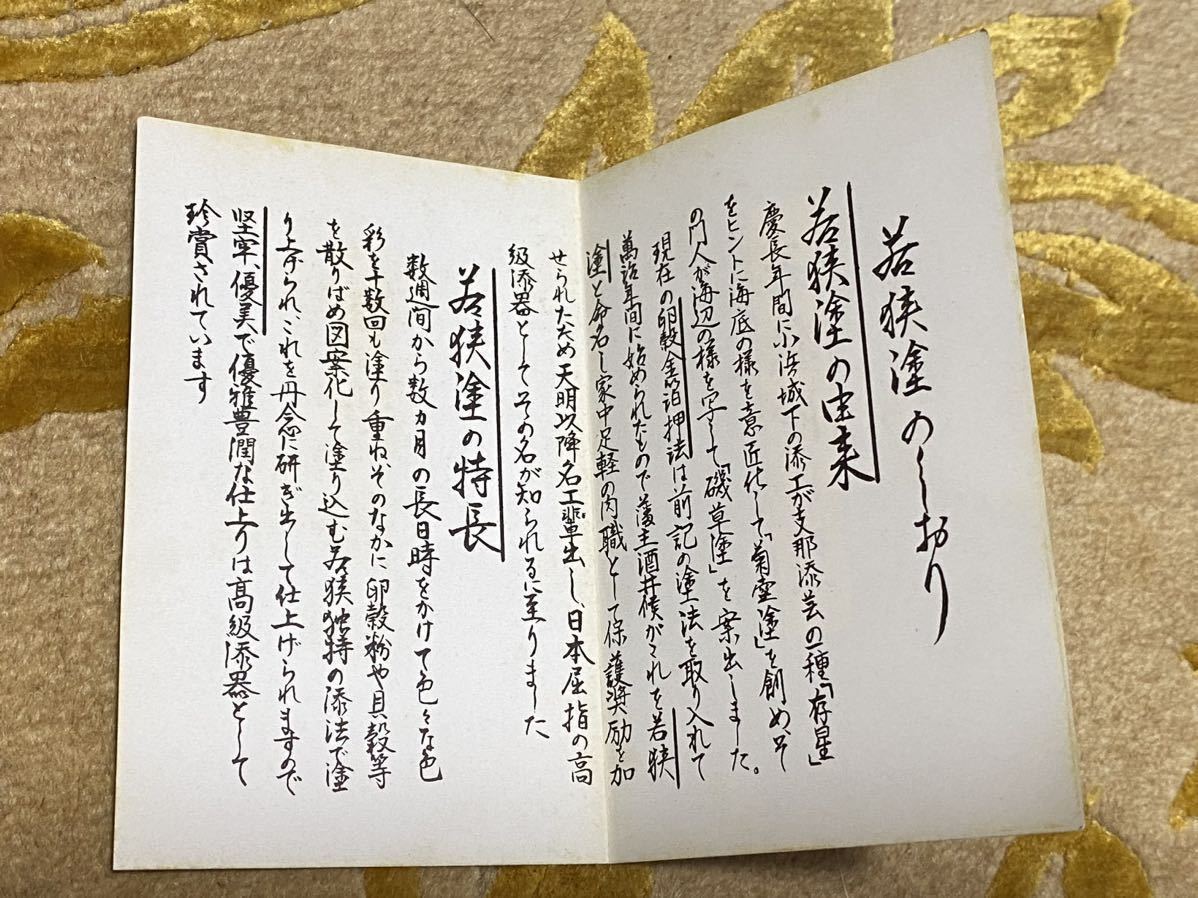 若狭塗のしおり
若狭塗の由来
慶長年間に小浜城下の漆工が支那漆芸の一種「存星」
をヒントに海底の様を意匠化して「菊塵塗」を創め、その
の門人が海辺の様を写して「磯草塗」を案出しました。
現在の卵殻金箔押法は前記の塗法を取り入れて
萬治年間に始められたもので藩主酒井侯がこれを若狭
塗と命名し家中足軽の内職として保護奨励を加
せられたため天明以降名工輩出し、日本屈指の高
級漆器としてその名が知られるに至りました
若狭塗の特長
数週間から数ヵ月の長日時をかけて色々な色
彩を十数回も塗り重ねそのなかに卵殻粉や貝殻等
を散りばめ図案化して塗り込む若狭独特の漆法で塗
り上げられ、これを丹念に研ぎ出して仕上げられますので
堅牢、優美で優雅豊潤な仕上りは高級漆器として
珍賞されています